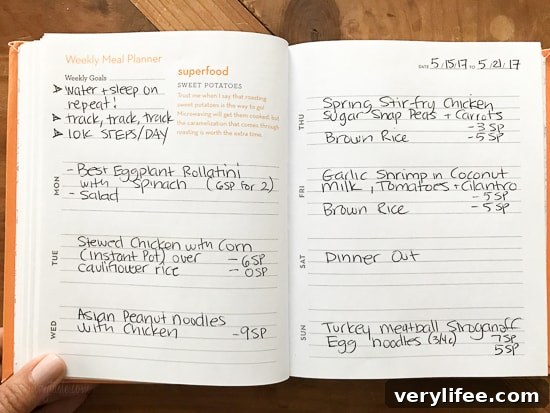 Weekly Meal Planner
Weekly Goals
water + sleep on
repeat!
track, track, track
10K STEPS/DAY
superfood
SWEET POTATOES
Trust me when I say that roasting
sweet potatoes is the way to go!
Microwaving will get them cooked, but
the caramelization that comes through
roasting is worth the extra time.
MON
- Best Eggplant Rollatini
with spinach (6SP for 2)
- Salad
TUE
Stewed Chicken with Corn
(Instant Pot) over - 6SP
cauliflower rice - 0SP
WED
Asian Peanut noodles
with Chicken - 9SP
DATE 5/15/17 TO 5/21/17
THU
Spring Stir-fry Chicken
Sugar Snap Peas + Carrots
- 3SP
Brown Rice - 5SP
FRI
Garlic Shrimp in Coconut
Milk, Tomatoes + Cilantro
- 5SP
Brown Rice - 5SP
SAT
Dinner Out
SUN
Turkey meatball Stroganoff
Egg noodles (3/4c) 7SP
5SP
verylifee.com